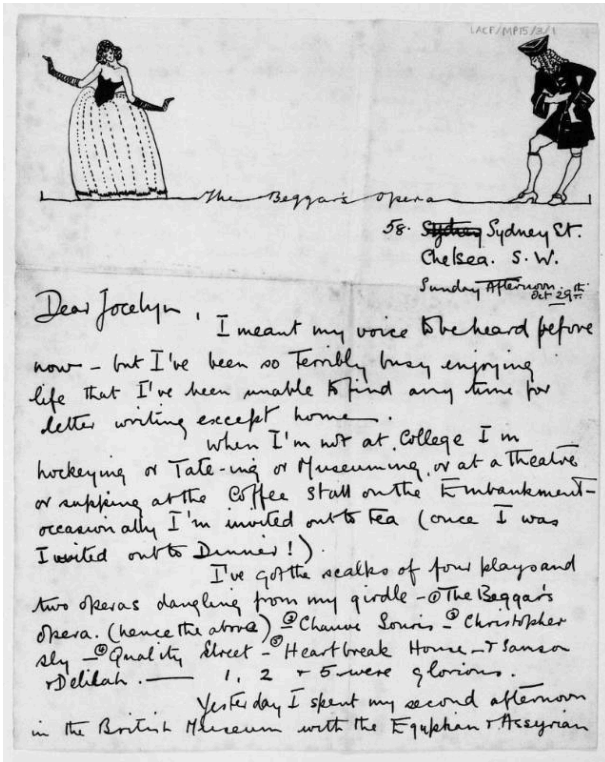 LACF/MP15/3/1
The Beggar's Opera
58. Sydney St.
Chelsea. S. W.
Sunday Afternoon.
Oct 29th.
Dear Jocelyn,
I meant my voice to be heard before
now – but I've been so terribly busy enjoying
life that I've been unable to find any time for
letter writing except home.
When I'm not at College I'm
hockeying or Tate-ing or Museuming, or at a theatre
or supping at the Coffee Stall on the Embankment –
occasionally I'm invited out to tea (once I was
Invited out to Dinner!).
I've got the scalps of four plays and
two operas dangling from my girdle – ① The Beggar's
opera. (hence the above) ② Chauve Souris – ③ Christopher
Sly – ④ Quality Street – ⑤ Heartbreak House – & Samson
& Delilah. — 1, 2 & 5 were glorious.
Yesterday I spent my second afternoon
in the British Museum with the Egyptian & Assyrian